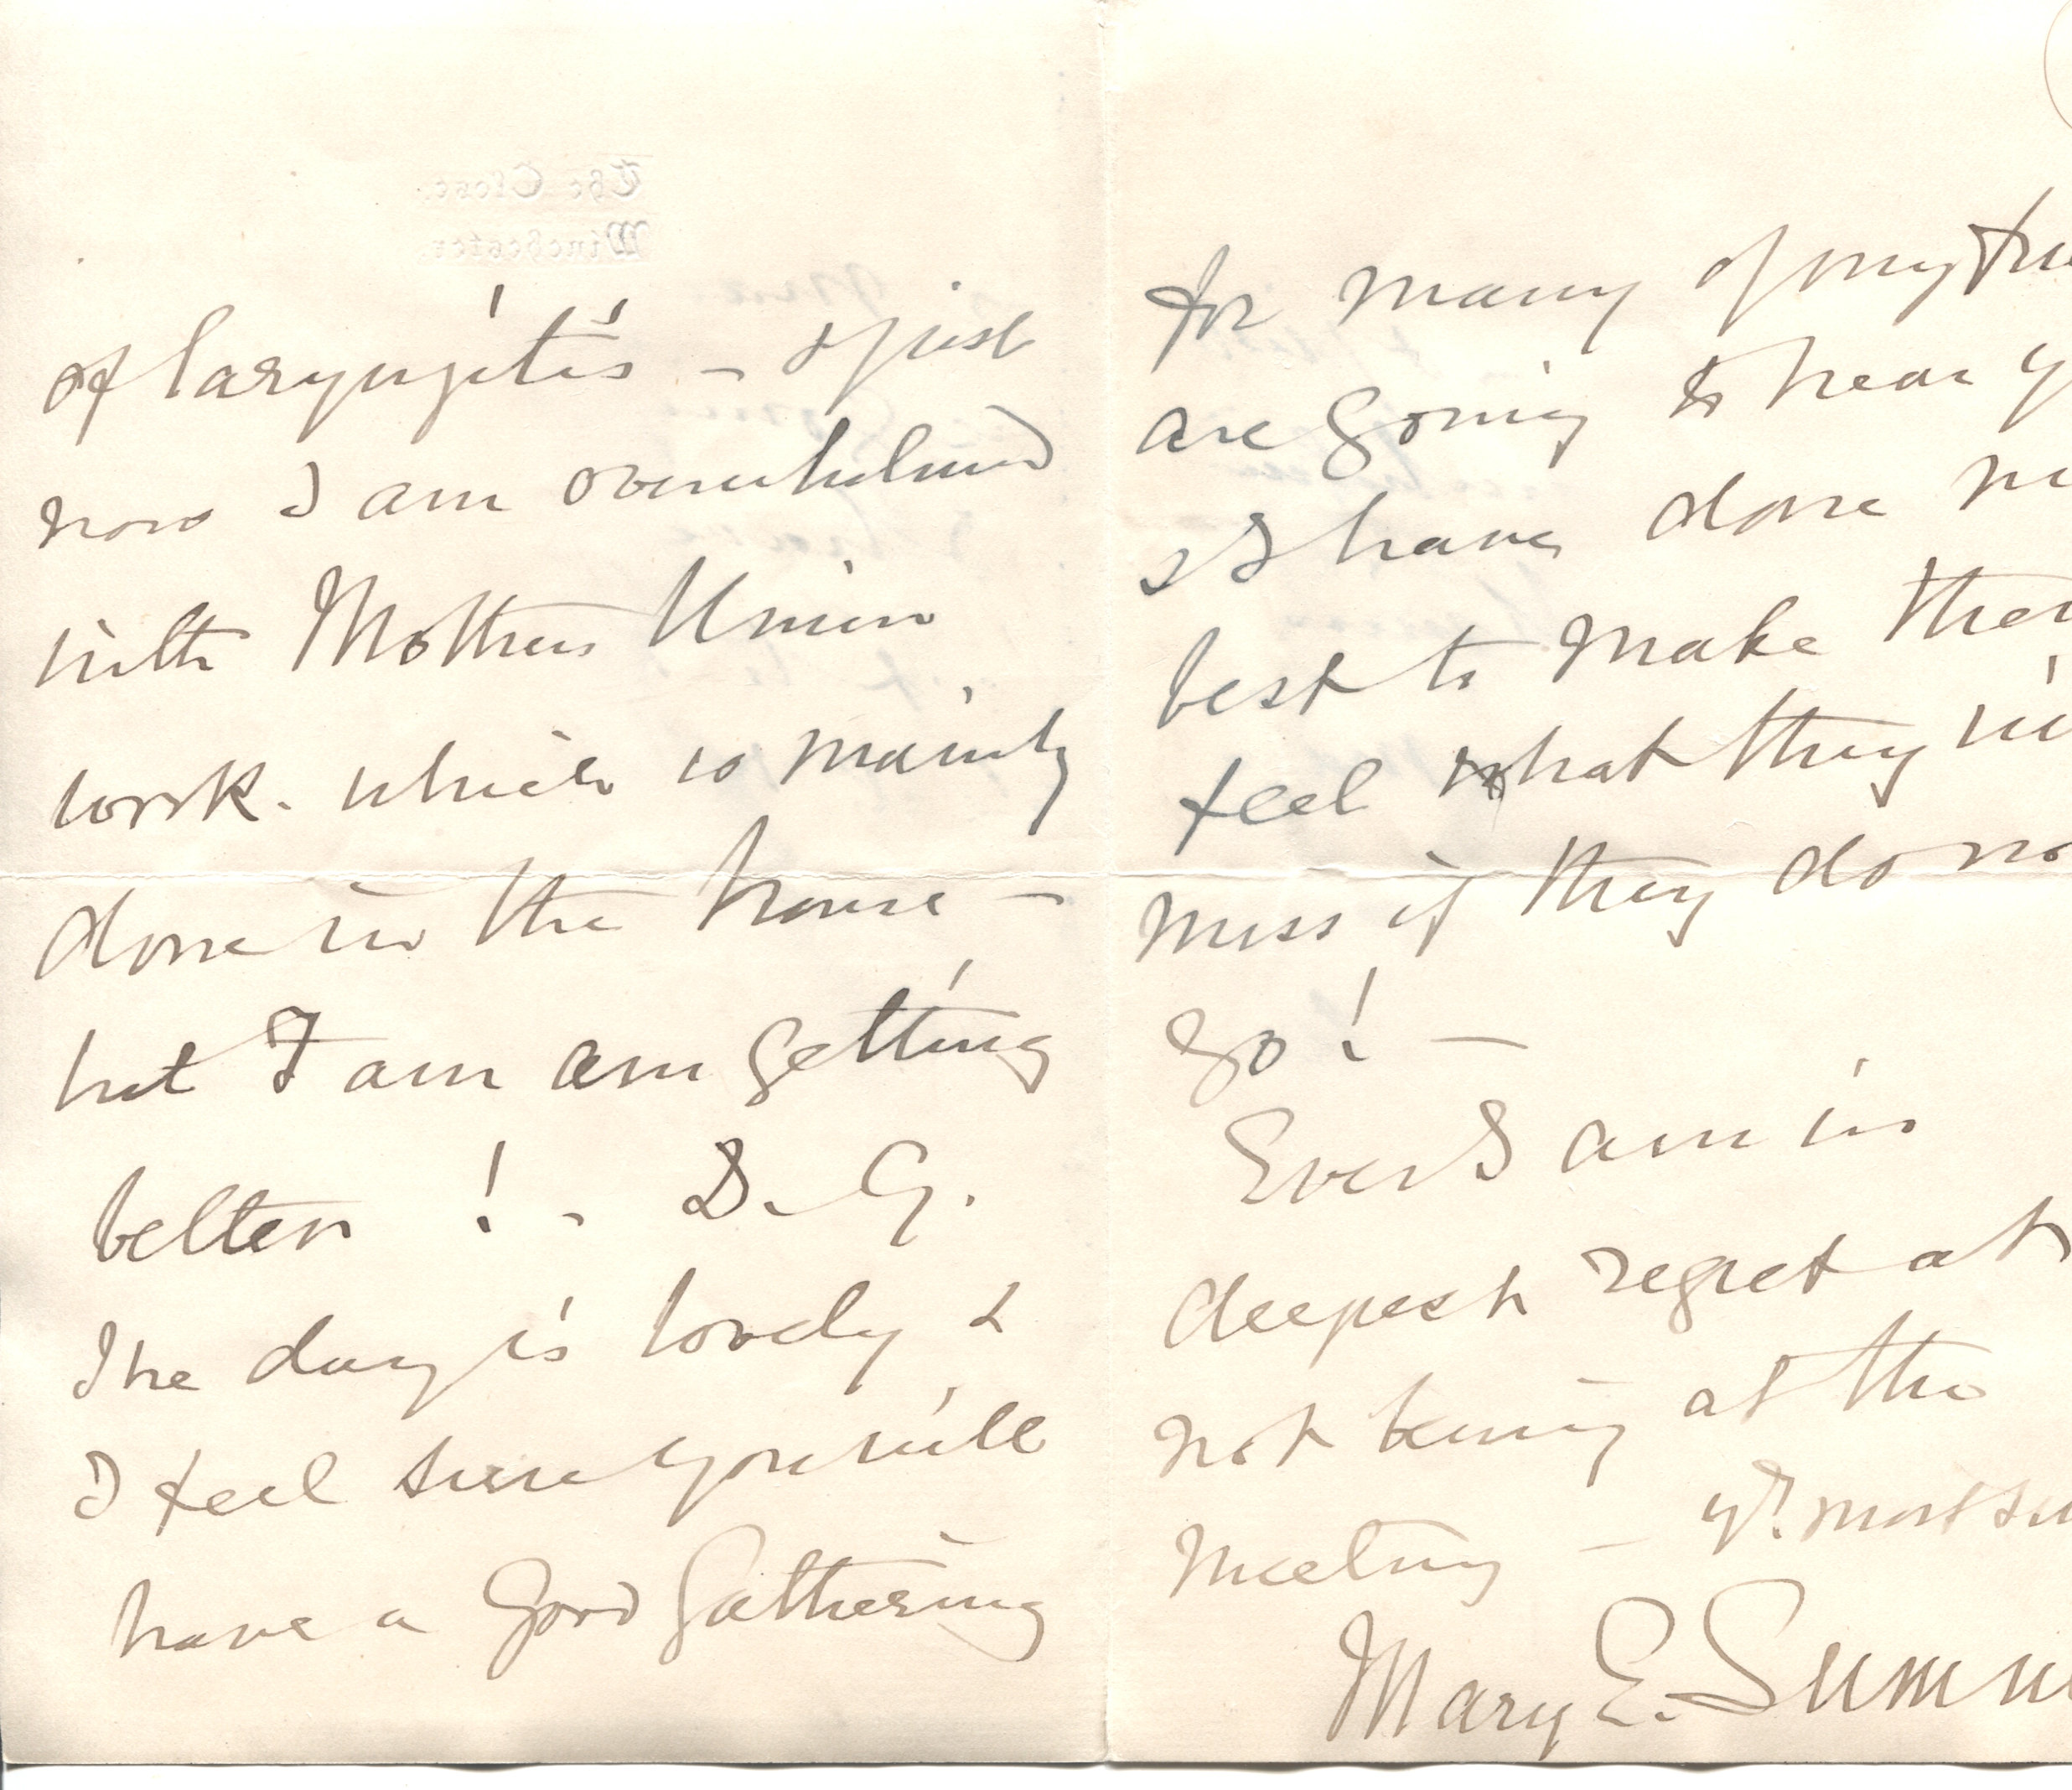 The Close.
Winchester.
of laryngitis – & just
now I am overwhelmed
with Mothers Union
work. which is mainly
done in the house –
but I am am getting
better ! – D. G.
The day is lovely &
I feel sure you will
have a good gathering
for many of my frie
are going to hear y
& I have done m
best to make them
feel what they wi
miss if they do no
go ! –
Ever I am in
deepest regret at
not being at the
meeting – yr. most sin
Mary E. Sumne